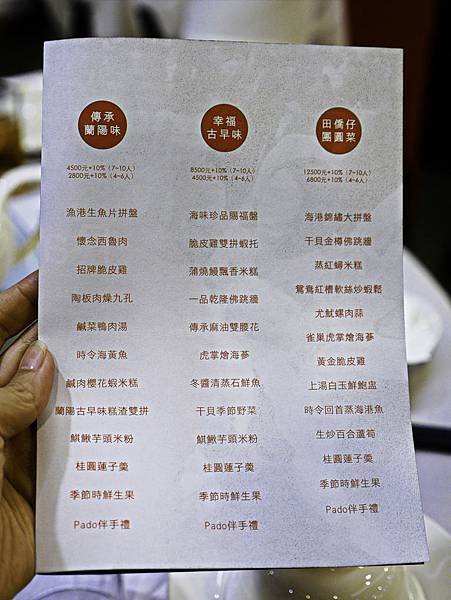 傳承
蘭陽味
4500元+10%（7~10人）
2800元+10%（4~6人）
漁港生魚片拼盤
懷念西魯肉
招牌脆皮雞
陶板肉燥九孔
鹹菜鴨肉湯
時令海黃魚
鹹肉櫻花蝦米糕
蘭陽古早味糕渣雙拼
麒鰍芋頭米粉
桂圓蓮子羹
季節時鮮生果
Pado伴手禮
幸福
古早味
8500元+10%（7~10人）
4500元+10%（4~6人）
海味珍品賜福盤
脆皮雞雙拼蝦托
蒲燒鰻飄香米糕
一品乾隆佛跳牆
傳承麻油雙腰花
虎掌燴海蔘
冬醬清蒸石鮮魚
干貝季節野菜
麒鰍芋頭米粉
桂圓蓮子羹
季節時鮮生果
Pado伴手禮
田僑仔
團圓菜
12500元+10%（7~10人）
6800元+10%（4~6人）
海港錦繡大拼盤
干貝金樽佛跳牆
蒸紅蟳米糕
鴛鴦紅槽軟絲炒蝦鬆
尤魷螺肉蒜
雀巢虎掌燴海蔘
黃金脆皮雞
上湯白玉鮮鮑盅
時令回首蒸海港魚
生炒百合蘆筍
桂圓蓮子羹
季節時鮮生果
Pado伴手禮